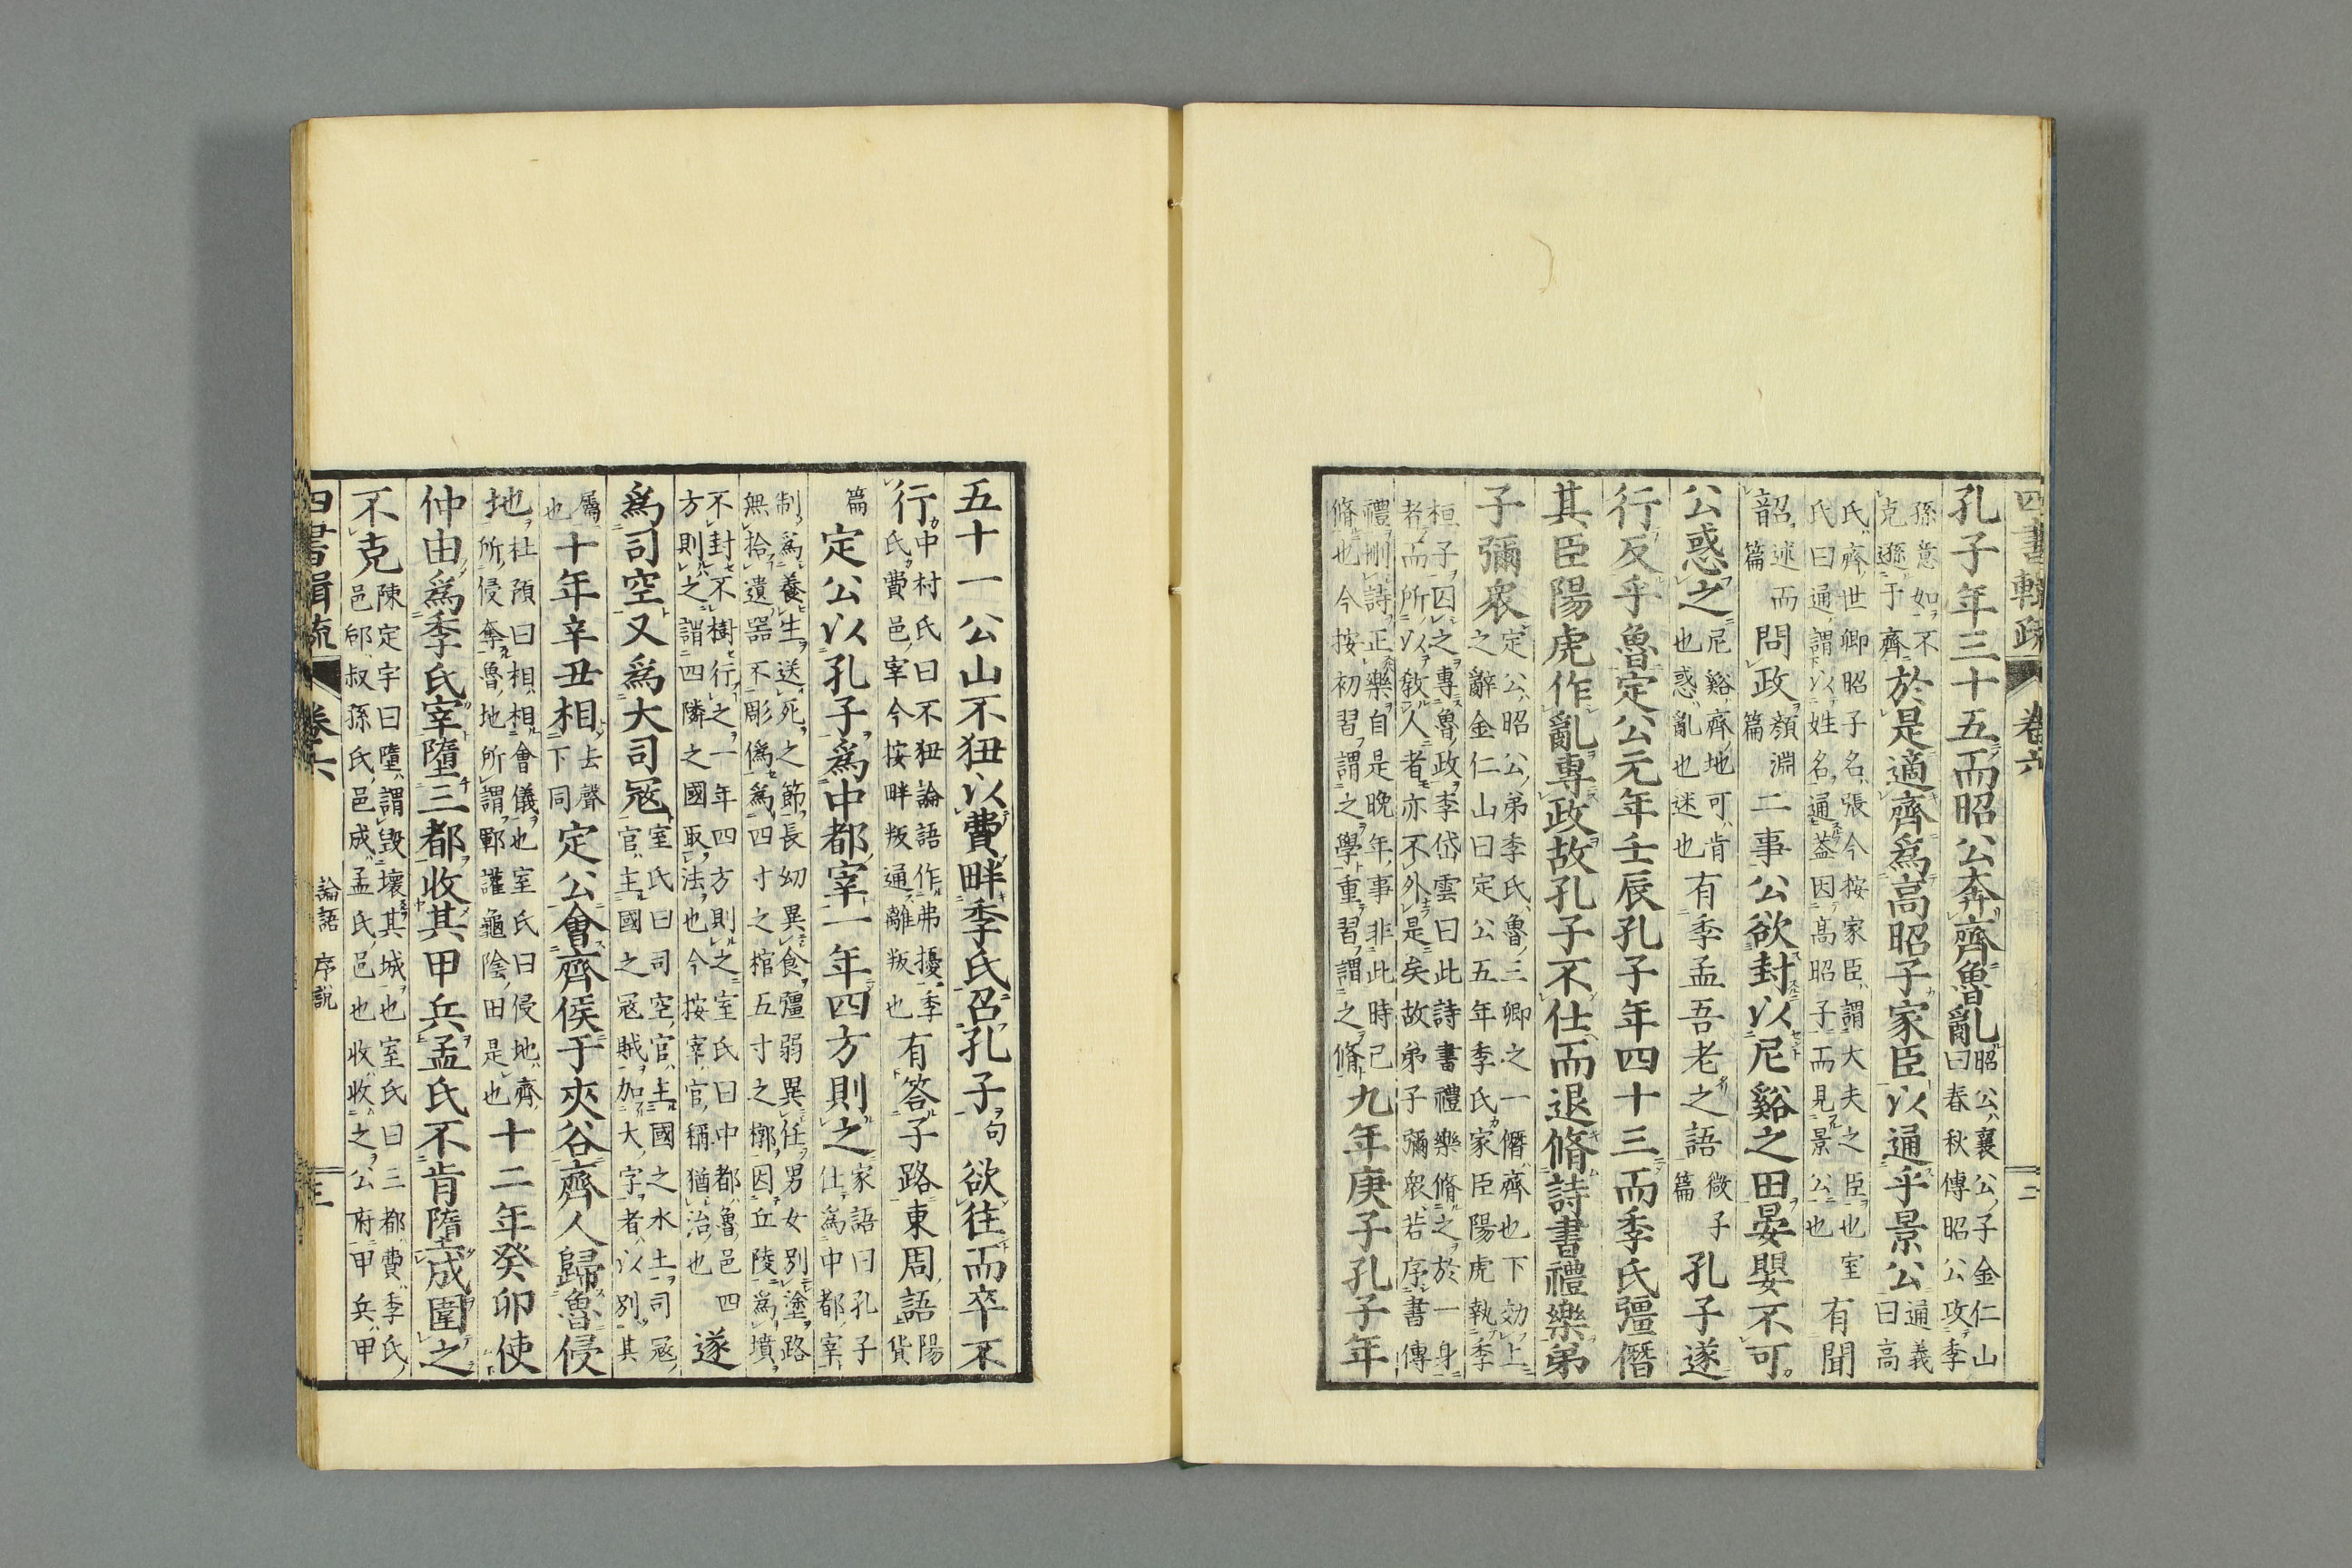 四書輯疏 卷六 二
孔子年三十五而昭公奔齊魯亂昭公襄公子金仁山曰春秋傳昭公攻季
孫意如不克遜于齊於是適齊爲高昭子家臣以通乎景公通義曰高
氏齊世卿昭子名張今按家臣謂大夫之臣也室氏曰通謂以姓名通蓋因高昭子而見景公也有聞
韶述而篇問政顏淵篇二事公欲封以尼谿之田晏嬰不可
公惑之尼谿齊地可肯也惑亂也迷也有季孟吾老之語微子篇孔子遂
行反乎魯定公元年壬辰孔子年四十三而季氏彊僭
其臣陽虎作亂專政故孔子不仕而退脩詩書禮樂弟
子彌衆定公昭公弟季氏魯三卿之一僭齊也下効上之辭金仁山曰定公五年季氏家臣陽虎執季
桓子囚之專魯政李岱雲曰此詩書禮樂脩之於一身者而所以敎人者亦不外是矣故弟子彌衆若序書傳
禮刪詩正樂自是晚年事非此時已脩也今按初習謂之學重習謂之脩九年庚子孔子年
五十一公山不狃以費畔季氏召孔子句欲往而卒不
行中村氏曰不狃論語作弗擾季氏費邑宰今按畔叛通離叛也有答子路東周語陽貨
篇定公以孔子爲中都宰一年四方則之家語曰孔子仕爲中都宰
制爲養生送死之節長幼異食彊弱異任男女別塗路無拾遺器不彫僞爲四寸之棺五寸之槨因丘陵爲墳
不封不樹行之一年四方則之室氏曰中都魯邑四方則之謂四隣之國取法也今按宰官稱猶治也遂
爲司空又爲大司寇室氏曰司空官主國之水土司寇官主國之寇賊加大字者以別其
屬也十年辛丑相去聲下同定公會齊侯于夾谷齊人歸魯侵
地杜預曰相相會儀也室氏曰侵地齊所侵奪魯地所謂鄆讙龜陰田是也十二年癸卯使
仲由爲季氏宰墮三都收其甲兵孟氏不肯墮成圍之
不克陳定宇曰墮謂毀壞其城也室氏曰三都費季氏邑郈叔孫氏邑成孟氏邑也收收之公府甲兵甲
四書輯疏 卷六 論語 序說 三